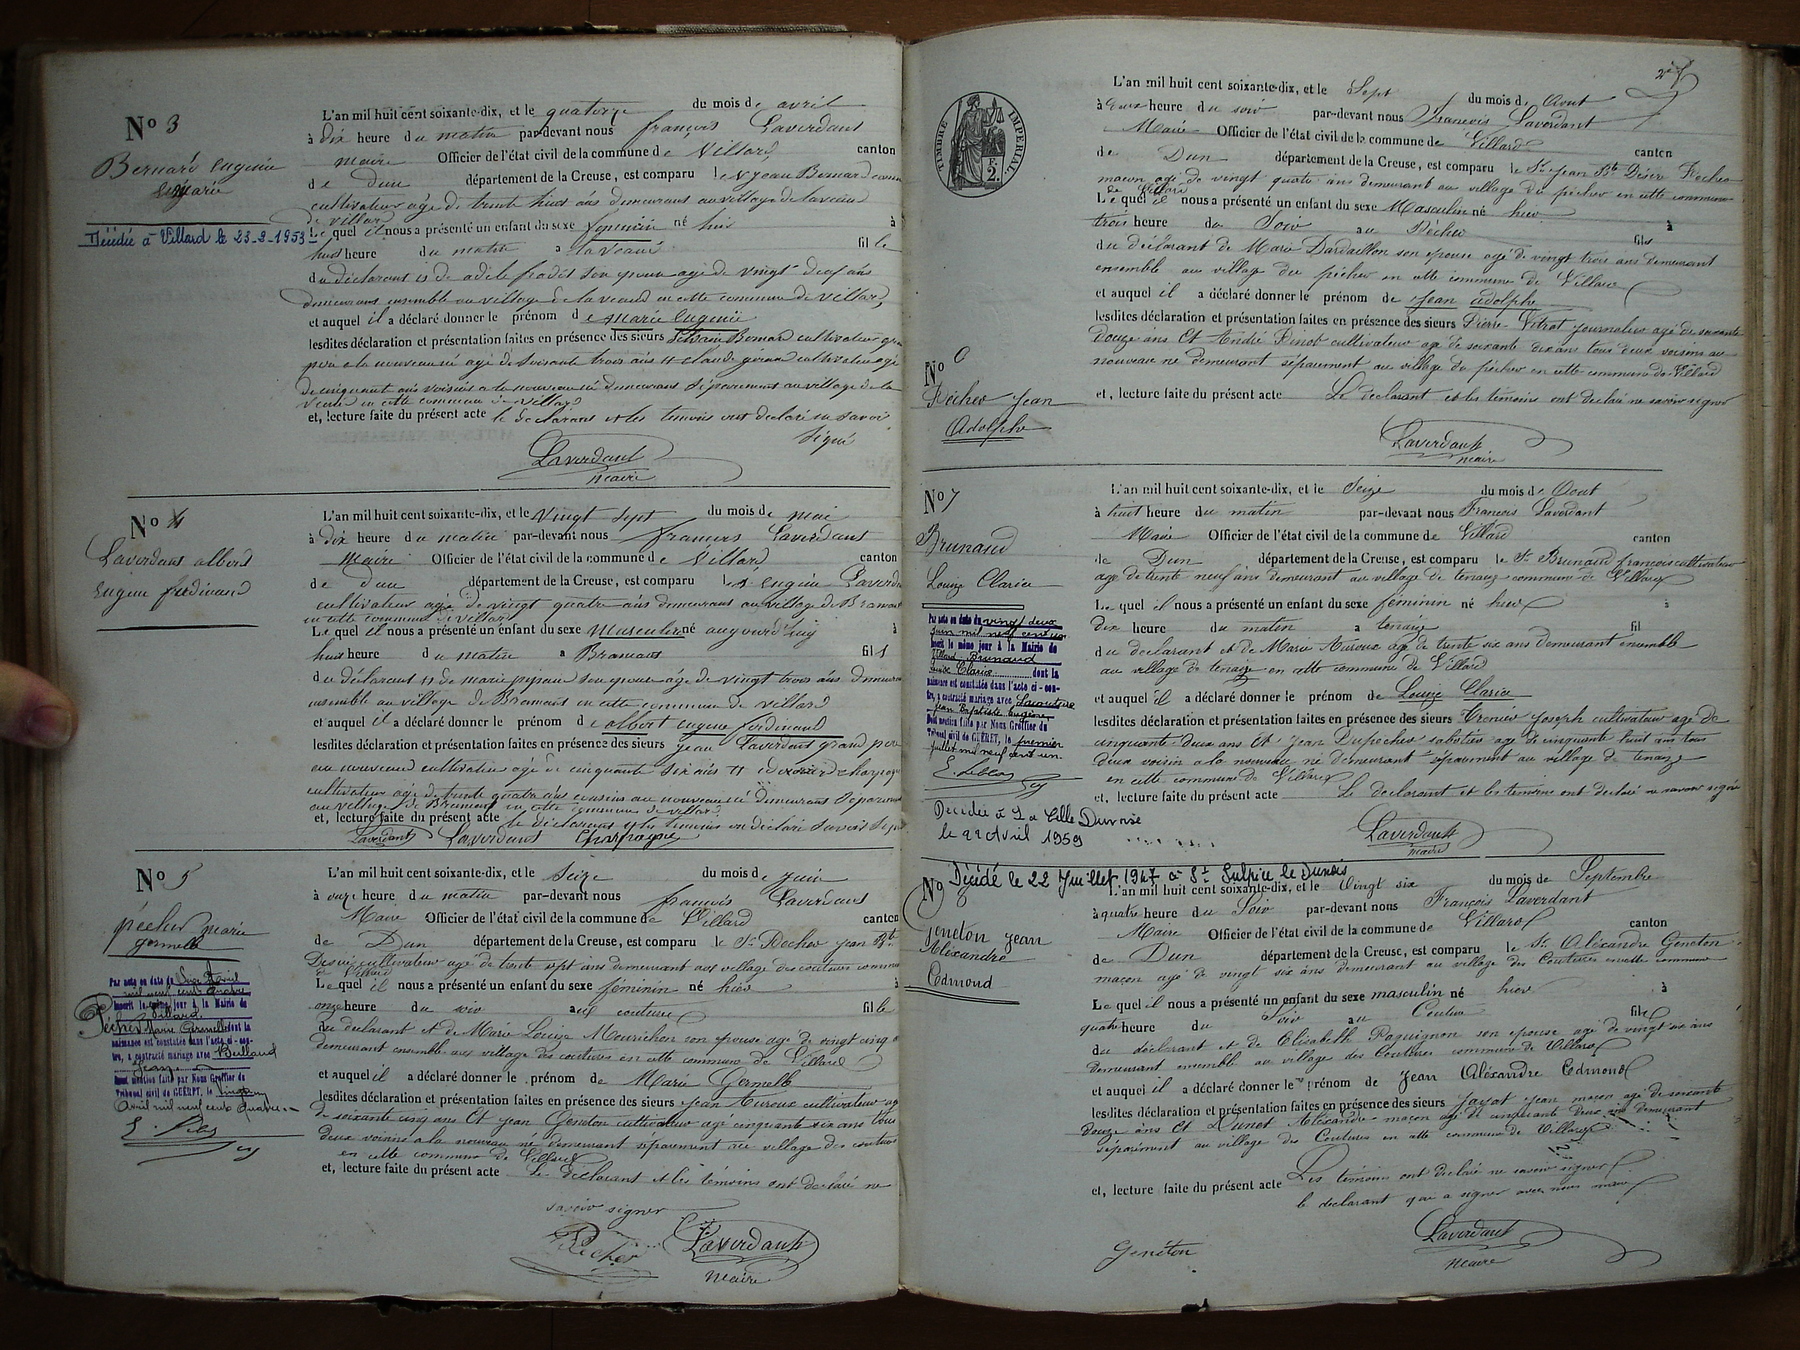 No 3
Bernard Eugénie
Marie
Décédée à Villard le 23-2-1953
L'an mil huit cent soixante-dix, et le quatorze du mois d avril
à dix heure du matin par-devant nous françois Laverdant
maire Officier de l'état civil de la commune de Villard canton
de dun département de la Creuse, est comparu le Sr jean Bernard
cultivateur agé de trente huit ans demeurant au village de laveau
de villard
Le quel il nous a présenté un enfant du sexe feminin né hier à
huit heure du matin a laveau fille
du déclarant et de adele fradet son epouse agé de vingt neuf ans
demeurans ensemble au village de la veaud en cette commune de villard
et auquel il a déclaré donner le prénom de marie Eugenie
lesdites déclaration et présentation faites en présence des sieurs Silvain Bernard cultivateur
pere a la nouveau né agé de soisante trois ans et claude cultivateur agé
de cinquante ans voisins a la nouveau né demeurans séparement au village de la
veau en cette commune de villard
et, lecture faite du présent acte le déclarant et les temoins ont déclaré ne savoir
signé
Laverdant
maire
No 4
Laverdant albert
Eugène ferdinand
L'an mil huit cent soixante-dix, et le Vingt Sept du mois de mai
à dix heure du matin par-devant nous françois Laverdant
Maire Officier de l'état civil de la commune de Villard canton
de dun département de la Creuse, est comparu le Sr eugène Laverdant
cultivateur agé de vingt quatre ans demeurant au village de Bramont
en cette commune de villard
Le quel il nous a présenté un enfant du sexe Masculin né aujourd'huy à
huit heure du matin a Bramont fils
du déclarant et de marie son epouse age de vingt trois ans demeurant
ensemble au village de Bramont en cette commune de villard
et auquel il a déclaré donner le prénom de albert eugene ferdinand
lesdites déclaration et présentation faites en présence des sieurs jean Laverdant grand pere
au nouveau cultivateur agé de cinquante six ans et
cultivateur age de trente quatre ans cousins au nouveau né demeurans séparement
au village de Bramont en cette commune de villard
et, lecture faite du présent acte le déclarant et les temoins on déclaré savoir signé
Laverdant Laverdant Champagne
No 5
pécher marie
Germelle
Par acte en date du onze Avril
mil neuf cent quatre
inscrit le même jour à la Mairie de
Villard
Pécher Marie Germelle dont la
naissance est constatée dans l'acte ci-con-
tre, a contracté mariage avec
Dont mention faite par Nous Greffier du
Tribunal civil de GUÉRET, le
Avril mil neuf cent quatre
L'an mil huit cent soixante-dix, et le Seize du mois de juin
à onze heure du matin par-devant nous françois Laverdant
Maire Officier de l'état civil de la commune de Villard canton
de Dun département de la Creuse, est comparu le Sr Pecher jean Bte
Desiré cultivateur agé de trente sept ans demeurant aux village des coutures commune
de Villard
Le quel il nous a présenté un enfant du sexe feminin né hier à
onze heure du soir aux coutures fille
du declarant et de Marie Louise Mourichon son epouse age de vingt cinq
demeurant ensemble aux village des coutures en cette commune de Villard
et auquel il a déclaré donner le prénom de Marie Germelle
lesdites déclaration et présentation faites en présence des sieurs jean Auroux cultivateur agé
de soixante cinq ans Et jean Geneton cultivateur agé cinquante six ans tous
deux voisins a la nouveau né demeurant séparement au village des coutures
en cette commune de Villard
et, lecture faite du présent acte Le déclarant et les témoins ont déclaré ne
savoir signer
Pecher Laverdant
maire
TIMBRE IMPÉRIAL
2
No 6
Pécher Jean
Adolphe
L'an mil huit cent soixante-dix, et le Sept du mois d Aout
à heure du soir par-devant nous François Laverdant
Maire Officier de l'état civil de la commune de Villard canton
de Dun département de la Creuse, est comparu le Sr jean Bte Désiré Pecher
maçon agé de vingt quatre ans demeurant au village du pécher en cette commune
de Villard
Le quel il nous a présenté un enfant du sexe Masculin né hier à
trois heure du Soir au Pécher fils
du déclarant de Marie Dardaillon son épouse agé de vingt trois ans demeurant
ensemble au village du pécher en cette commune de Villard
et auquel il a déclaré donner le prénom de Jean adolphe
lesdites déclaration et présentation faites en présence des sieurs Pierre Vitrat journalier agé de soixante
douze ans Et André Pinot cultivateur agé de soixante dix ans tous deux voisins au
nouveau né demeurant séparement au village du pécher en cette commune de Villard
et, lecture faite du présent acte Le déclarant et les témoins ont déclaré ne savoir signer
Laverdant
maire
No 7
Brunaud
Louize Claria
Par acte en date du vingt deux
juin mil neuf cent un
inscrit le même jour à la Mairie de
Villard Brunaud
Louise Claria dont la
naissance est constatée dans l'acte ci-con-
tre, a contracté mariage avec
Jean Baptiste Eugène
Dont mention faite par Nous Greffier du
Tribunal civil de GUÉRET, le premier
juillet mil neuf cent un.
Décédée à La Celle Dunoise
le 22 Avril 1959
L'an mil huit cent soixante-dix, et le Seize du mois d Aout
à huit heure du matin par-devant nous François Laverdant
Maire Officier de l'état civil de la commune de Villard canton
de Dun département de la Creuse, est comparu le Sr Brunaud françois cultivateur
age de trente neuf ans demeurant au village de tenaize commune de Villard
Le quel il nous a présenté un enfant du sexe féminin né hier à
dix heure du matin a tenaize fil
du declarant et de Marie Auroux age de trente six ans demeurant ensemble
au village de tenaize en cette commune de Villard
et auquel il a déclaré donner le prénom de Louize Claria
lesdites déclaration et présentation faites en présence des sieurs joseph cultivateur age de
cinquante deux ans Et Jean Dupecher sabotier age de cinquante huit ans tous
deux voisin a la nouveau né demeurant séparement au village de tenaize
en cette commune de Villard
et, lecture faite du présent acte Le declarant et les témoins ont déclaré ne savoir signé
Laverdant
maire
Décédé le 22 Juillet 1947 à St Sulpice le Dunois
No 8
Geneton jean
Aléxandre
Edmond
L'an mil huit cent soixante-dix, et le Vingt six du mois de Septembre
à quatre heure du Soir par-devant nous François Laverdant
Maire Officier de l'état civil de la commune de Villard canton
de Dun département de la Creuse, est comparu le Sr Aléxandre Geneton
maçon agé de vingt six ans demeurant au village des Coutures en cette commune
Le quel il nous a présenté un enfant du sexe masculin né hier à
quatre heure du Soir au Couture fils
du déclarant et de Elisabeth Paquignon son epouse agé de vingt six ans
demeurant ensemble au village des Coutures commune de Villard
et auquel il a déclaré donner le prénom de Jean Aléxandre Edmond
lesdites déclaration et présentation faites en présence des sieurs jayat jean maçon agé de soixante
douze ans Et Dunet Aléxandre maçon agé de cinquante deux ans demeurant
séparement au village des Coutures en cette commune de Villard
et, lecture faite du présent acte Les témoins ont declaré ne savoir signer
le declarant qui a signer avec nous maire
Genéton Laverdant
maire